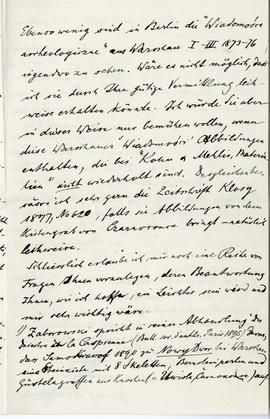 Ebenso wenig sind in Berlin die "Wiadomości
archeologiczne" aus Warschau I–III 1873–76
irgendwo zu sehen. Wäre es nicht möglich, dass
ich sie durch Ihre gütige Vermittlung leih-
weise erhalten könnte. Ich würde Sie aber
in dieser Weise nur bemühen wollen, wenn
diese Warschauer Wiadomości Abbildungen
enthalten, die bei "Kohn u. Mehlis, Materia-
lien" nicht wiederholt sind. Desgleichen
sähe ich sehr gern die Zeitschrift Klosy
1877, No 620, falls sie Abbildungen von dem
Kistengrab von Czarnorowo bringt – natürlich
leihweise.
Schliesslich erlaube ich mir noch eine Reihe von
Fragen Ihnen vorzulegen, deren Beantwortung
Ihnen, wie ich hoffe, ein Leichtes sein wird und
mir sehr wichtig wäre.
1) Zaborowski spricht in seiner Abhandlung Du
Dniestre à la Caspienne (Bull. soc. d'anthr. Paris 1895)
dass 1890 zu Nowy Dwor bei Warschau
eine Steinkiste mit 8 Skeletten, Bernsteinperlen und
aus Knochen